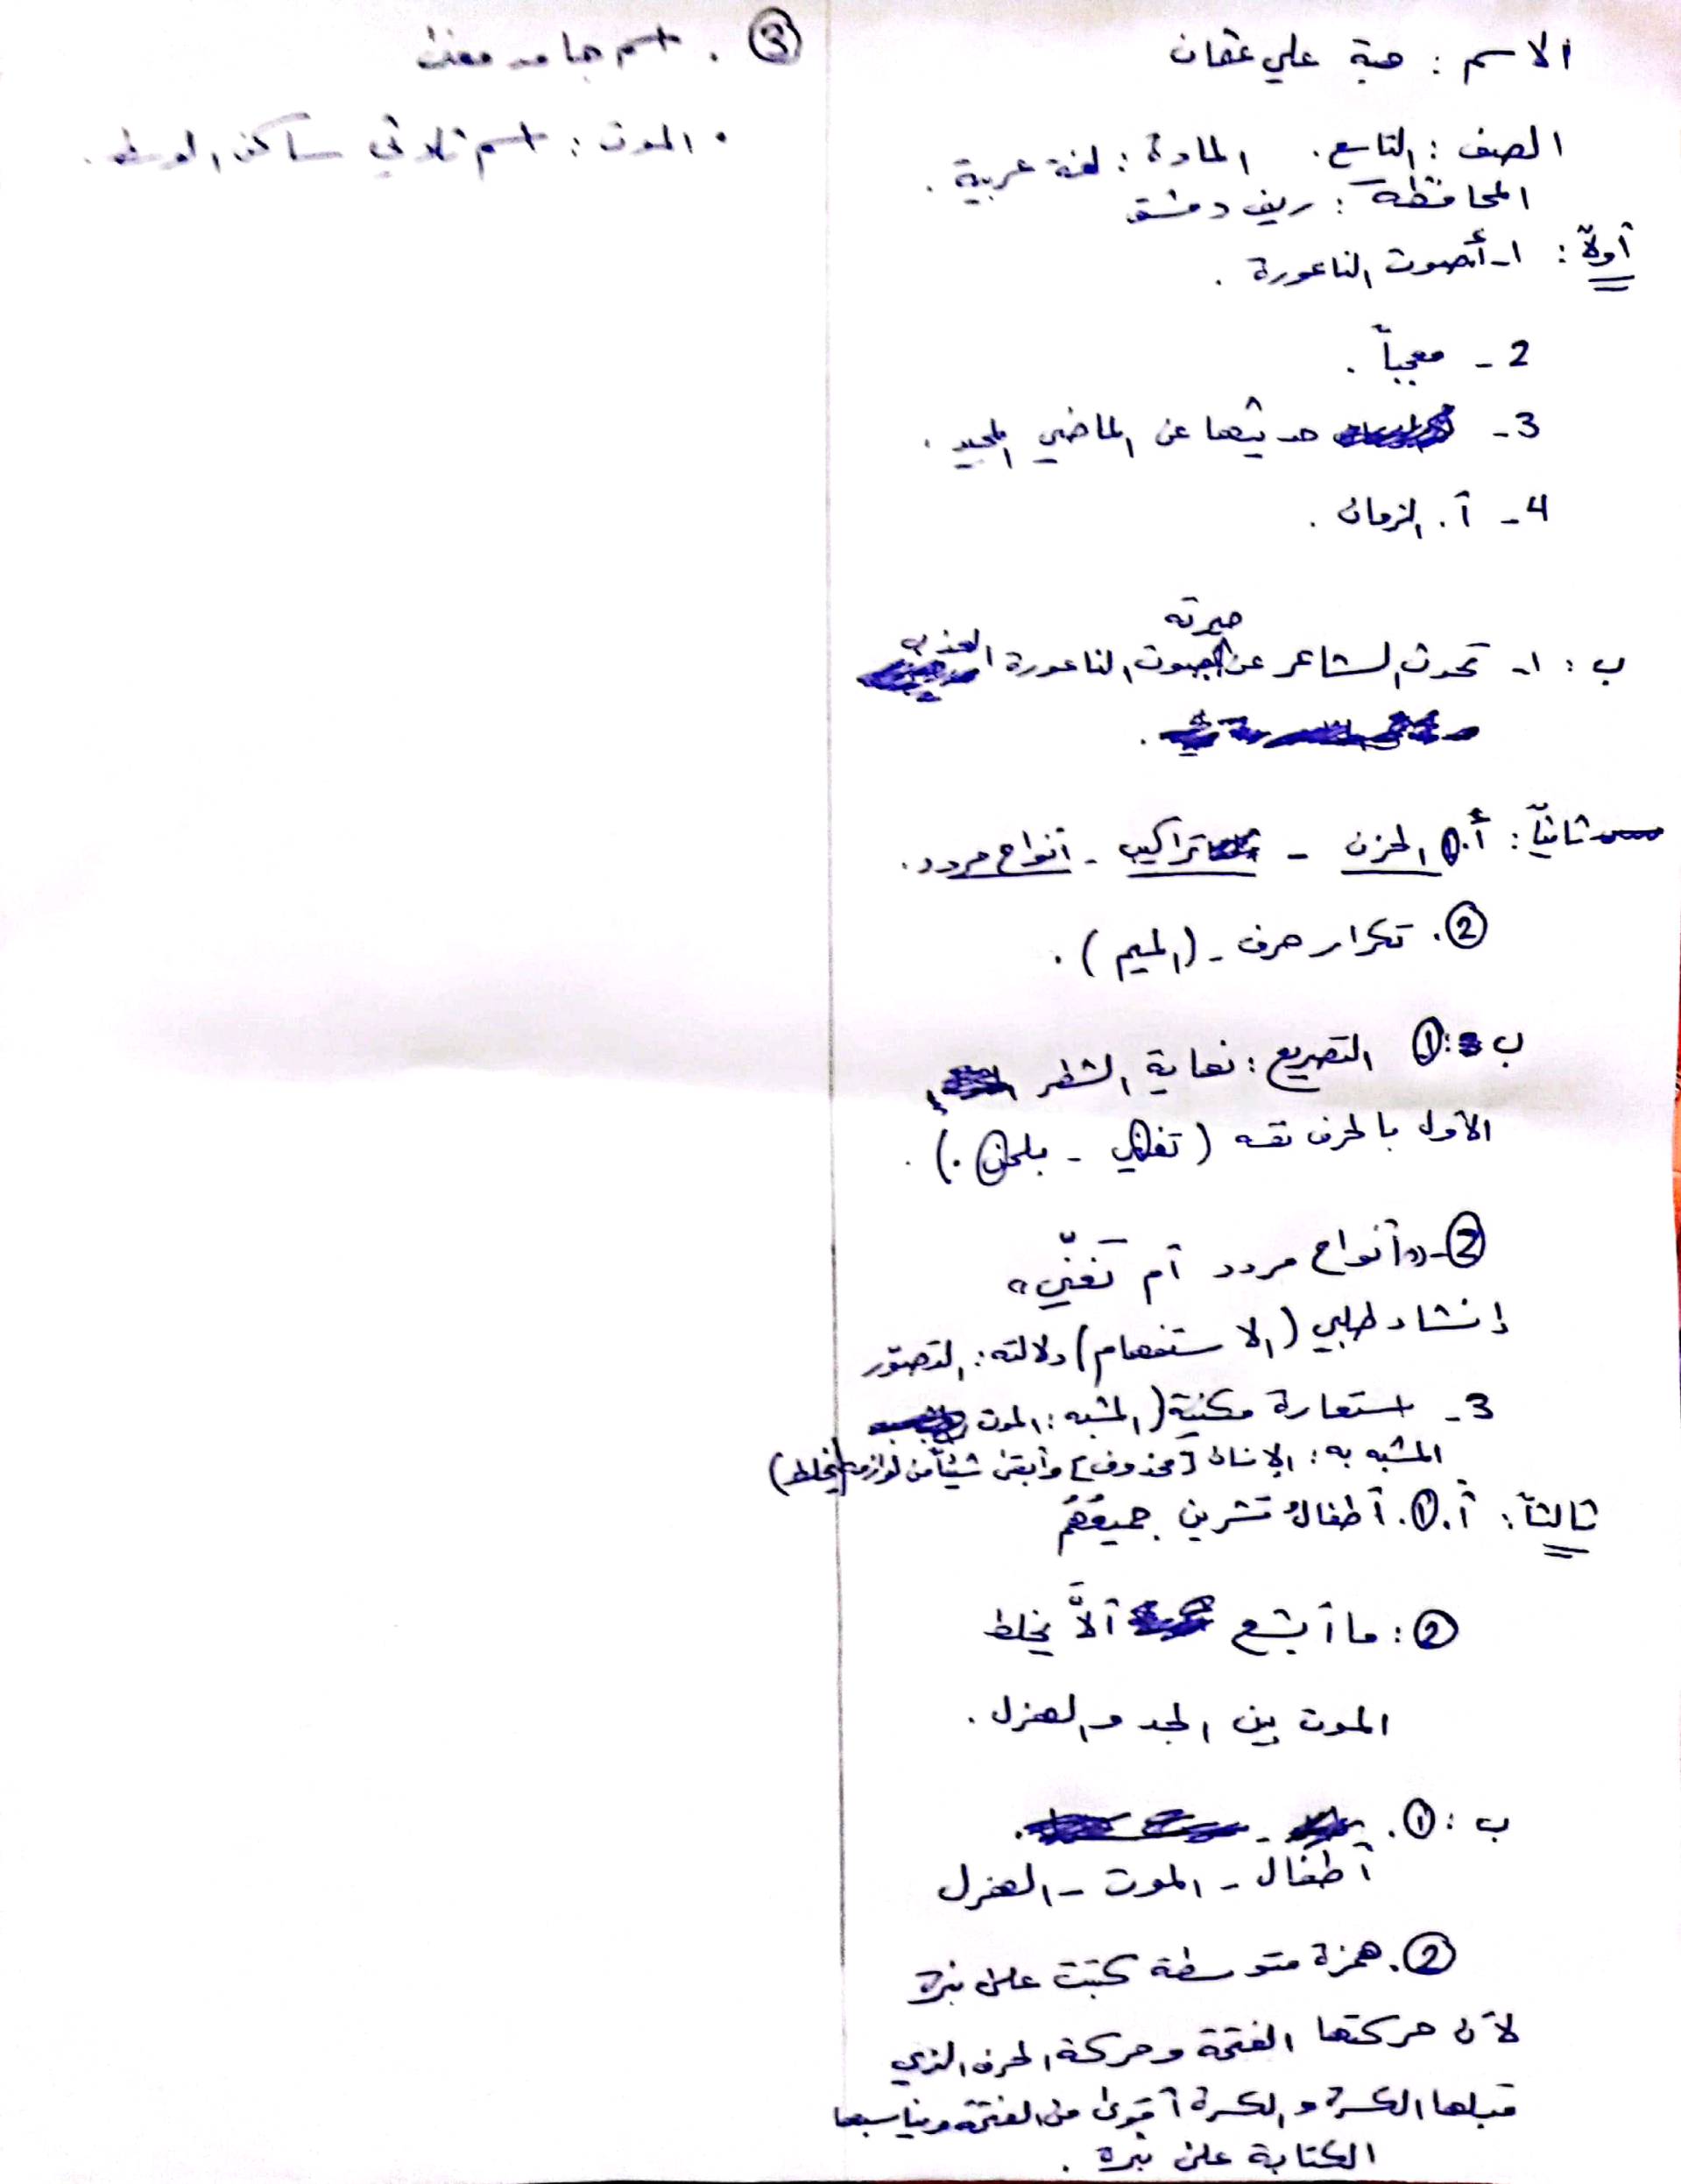 الاسم : هبة علي عثمان
الصف : التاسع . المادة : لغة عربية .
المحافظة : ريف دمشق
أولاً : 1- أصوت الناعورة .
2- معجباً .
3- حديثها عن الماضي المجيد .
4- أ. الزمان .
ب : 1- تحدث الشاعر عن حيرته بصوت الناعورة العذب
ثانياً : أ. 1 الحزن - تراكيب - أنواح مردد .
2. تكرار حرف - (الميم) .
ب : 1 التصريع : نهاية الشطر
الأول بالحرف نفسه (تغني - بلحن .) .
2- «أنواح مردد أم تَغنّي»
إنشاء طلبي (الاستفهام) دلالته : التصوّر
3- استعارة مكنية (المشبه : الموت
المشبه به : الإنسان [محذوف] وأبقى شيئاً من لوازمه (يخلط)
ثالثاً : أ. 1. أطفالُ تشرين جميعُهُمُ
2 : ما أبشع ألاَّ يخلط
الموت بين الجد والهزل .
ب : 1.
أطفال - الموت - الهزل
2. همزة متوسطة كتبت على نبرة
لأن حركتها الفتحة وحركة الحرف الذي
قبلها الكسرة والكسرة أقوى من الفتحة ويناسبها
الكتابة على نبرة .
3. اسم جامد معنى
. الموت : اسم ثلاثي ساكن الوسط .